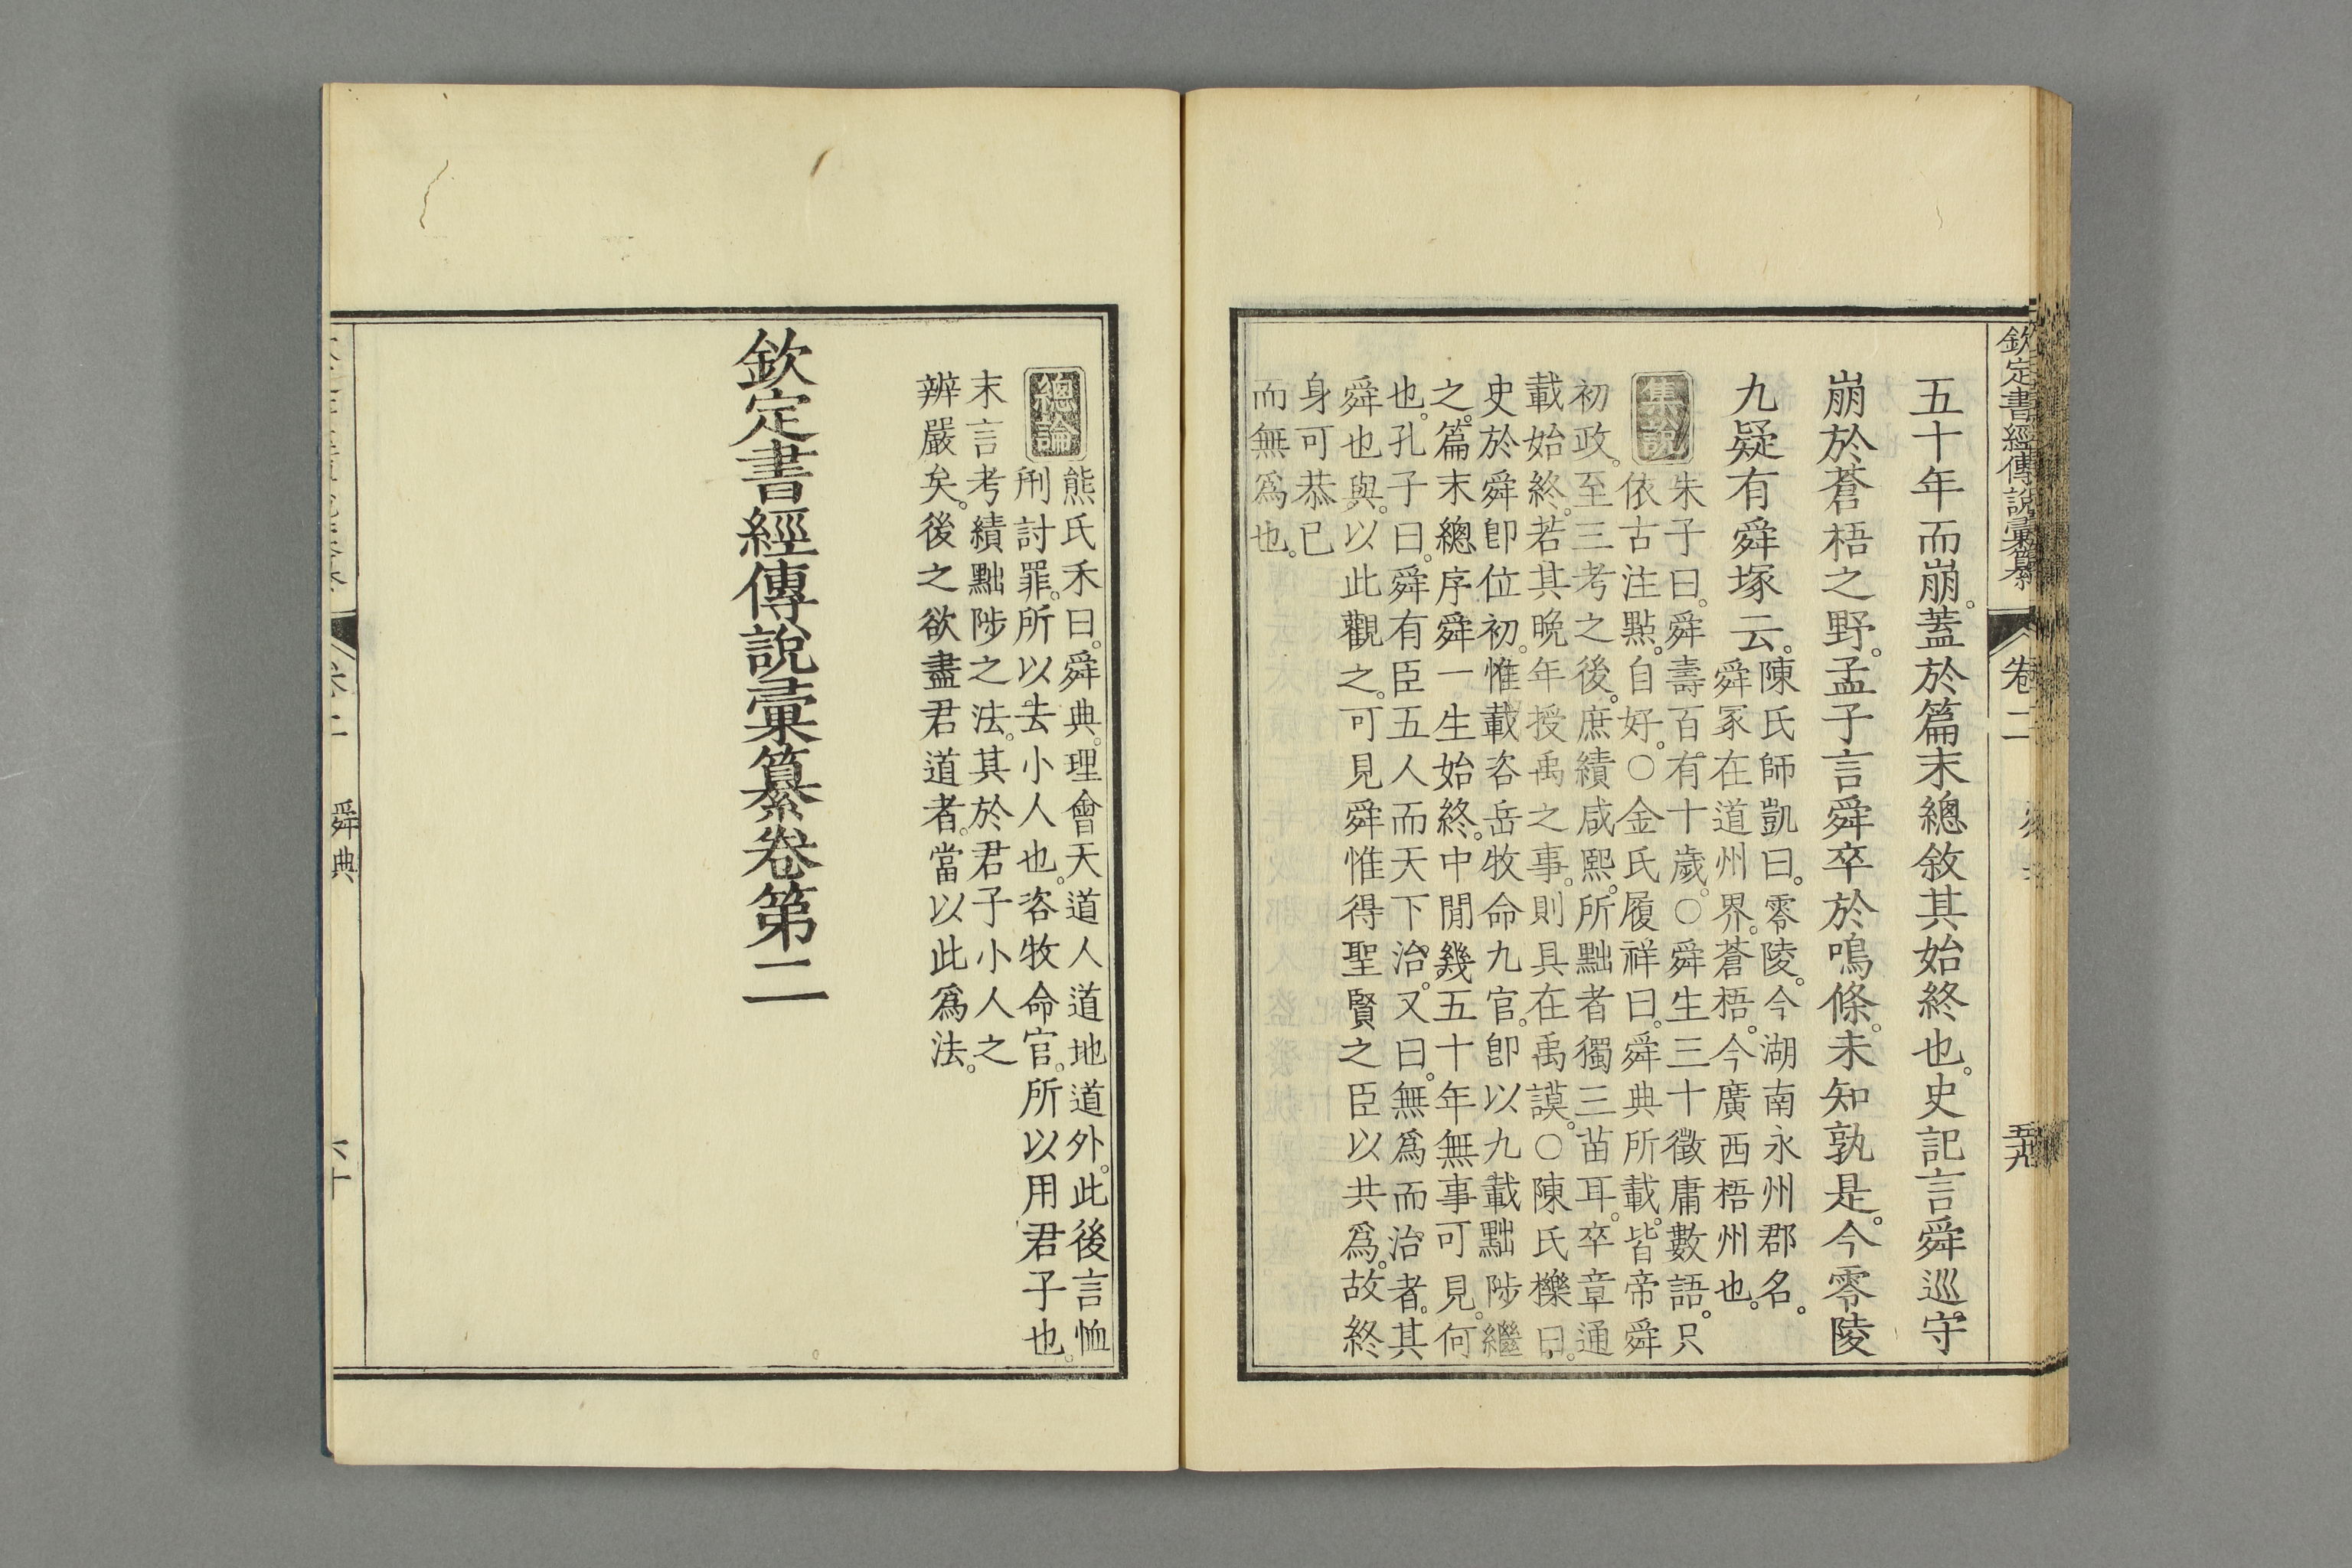 欽定書經傳說彙纂 卷二 五十九
五十年而崩。蓋於篇末總敘其始終也。史記言舜巡守
崩於蒼梧之野。孟子言舜卒於鳴條。未知孰是。今零陵
九疑有舜塚云。
陳氏師凱曰。零陵。今湖南永州郡名。
舜冢在道州界。蒼梧。今廣西梧州也。
集說
朱子曰。舜壽百有十歲。○舜生三十徵庸數語。只
依古注點。自好。○金氏履祥曰。舜典所載。皆帝舜
初政。至三考之後。庶績咸熙。所黜者獨三苗耳。卒章通
載始終。若其晚年授禹之事。則具在禹謨。○陳氏櫟曰。
史於舜卽位初。惟載咨岳牧命九官。卽以九載黜陟繼
之。篇末總序舜一生始終。中閒幾五十年無事可見。何
也。孔子曰。舜有臣五人而天下治。又曰。無爲而治者。其
舜也與。以此觀之。可見舜惟得聖賢之臣以共爲。故終
身可恭已
而無爲也。
總論
熊氏禾曰。舜典。理會天道人道地道外。此後言恤
刑討罪。所以去小人也。咨牧命官。所以用君子也。
末言考績黜陟之法。其於君子小人之
辨嚴矣。後之欲盡君道者。當以此爲法。
欽定書經傳說彙纂卷第二
舜典